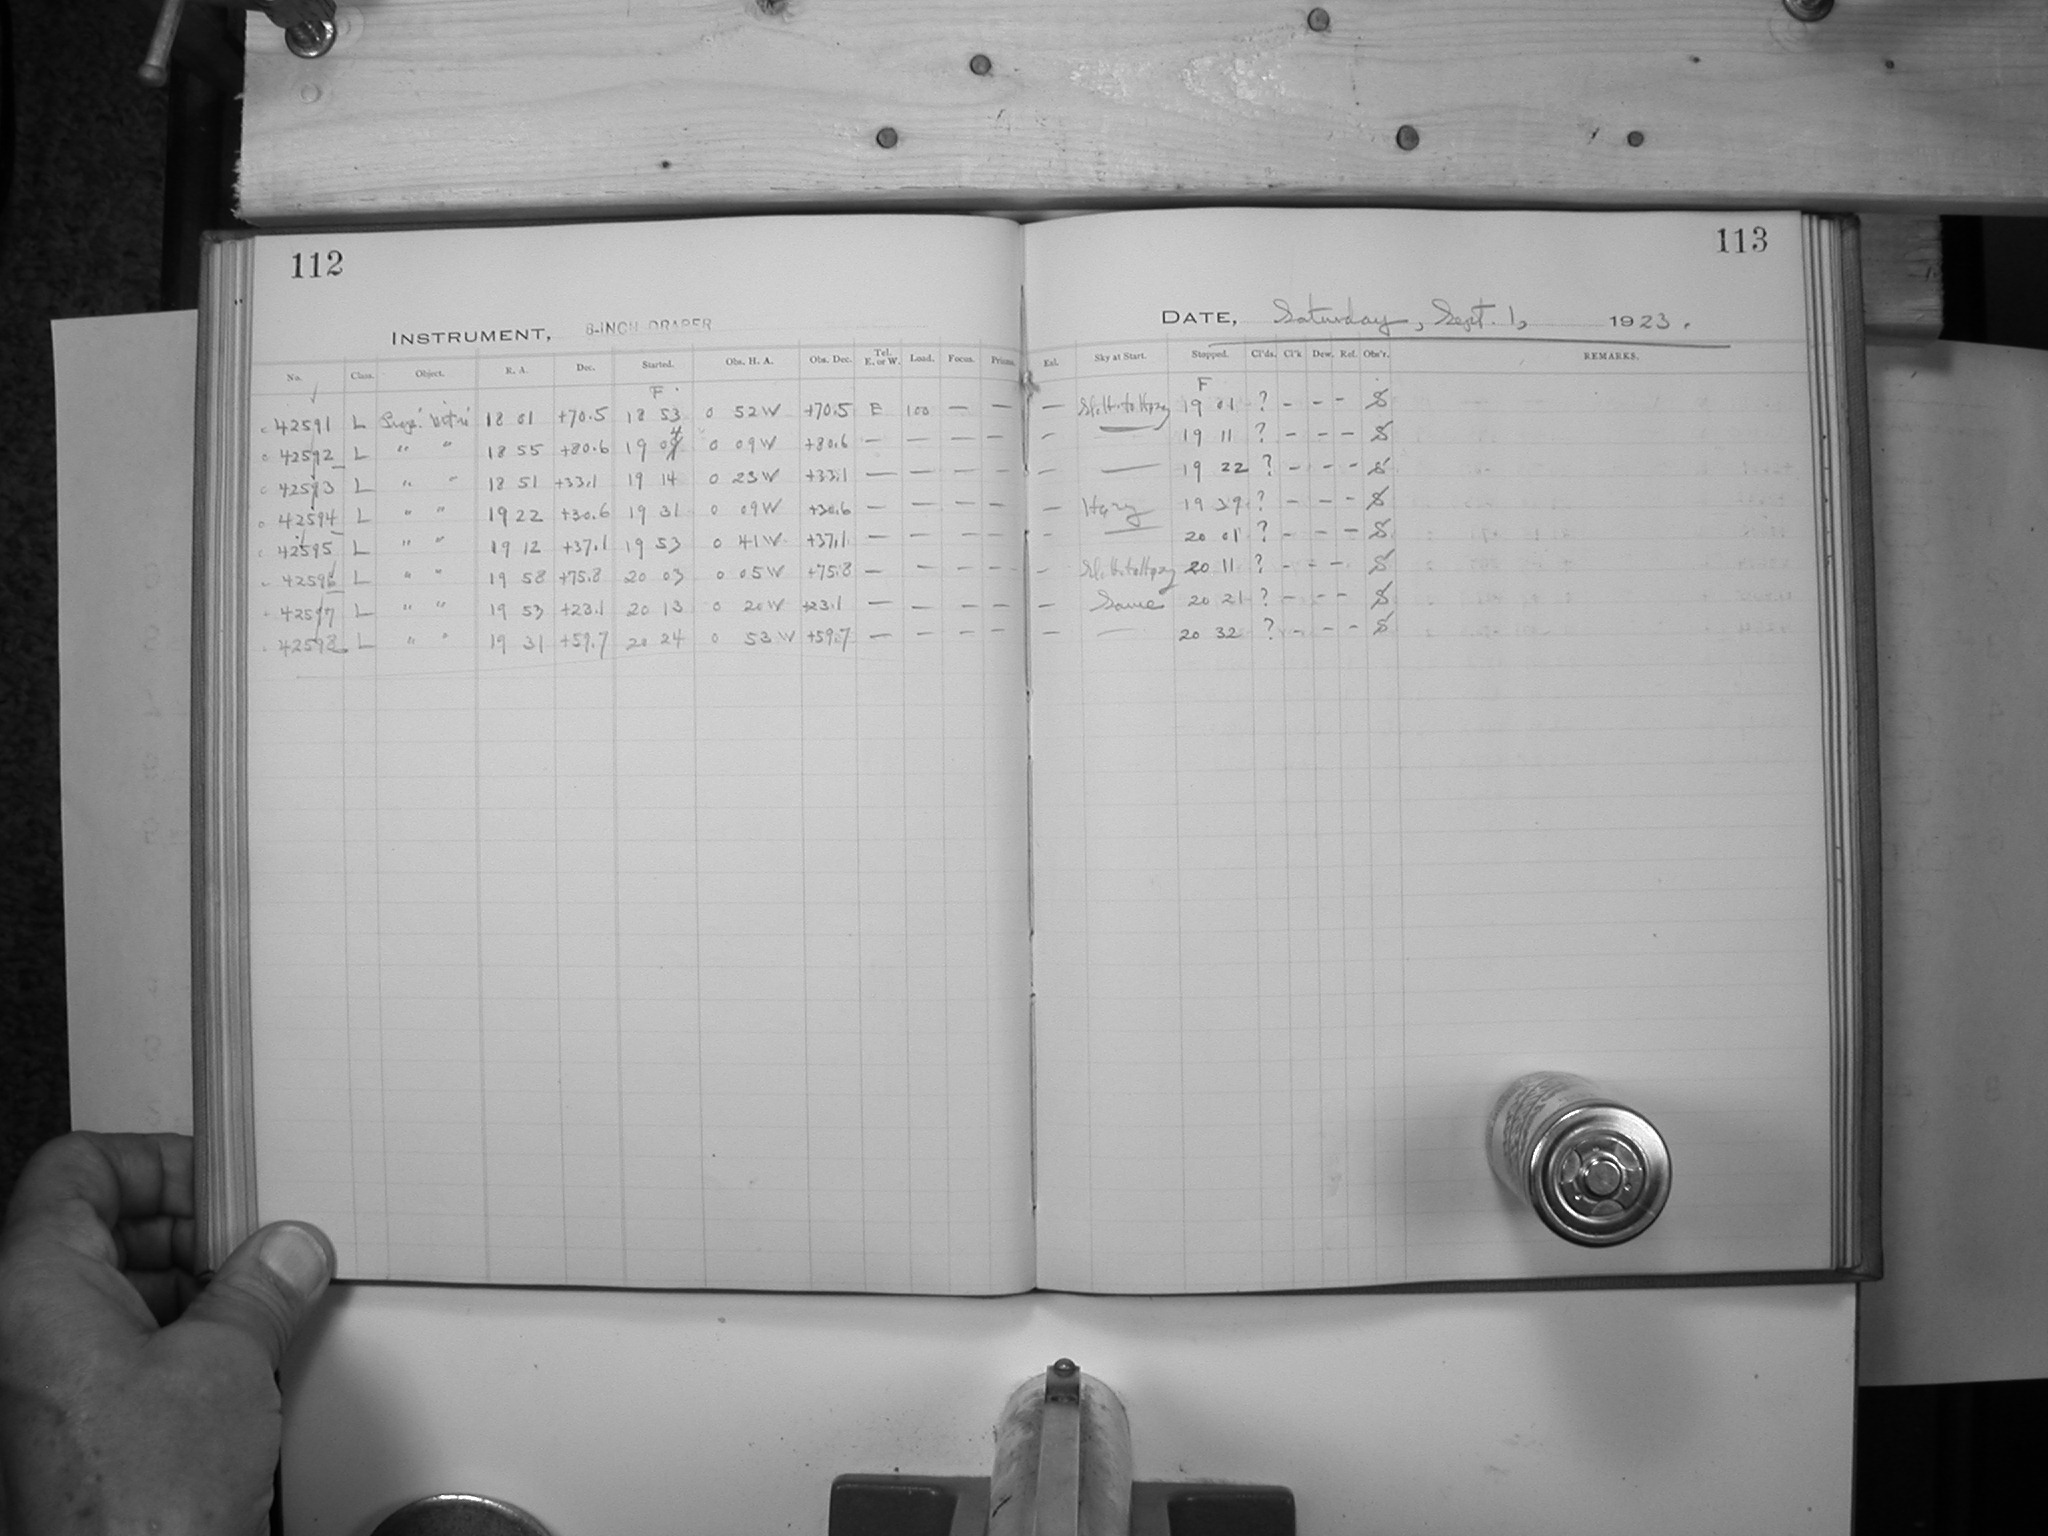 112
113
INSTRUMENT, 8-INCH DRAPER
DATE, Saturday, Sept. 1, 1923.
No. Class. Object. R. A. Dec. Started. Obs. H. A. Obs. Dec. Tel. E. or W. Load. Focus. Prisms. Exl. Sky at Start. Stopped. Cl'ds. Cl'k Dew. Ref. Obs'r. REMARKS.
F F
42591 L 18 01 +70.5 18 53 0 52 W +70.5 E 100 — — — 19 01 ? - - - S
42592 L " " 18 55 +80.6 19 04 0 09 W +80.6 — — — — - 19 11 ? - - - S
42593 L " " 18 51 +33.1 19 14 0 23 W +33.1 — — — — - — 19 22 ? - - - S
42594 L " " 19 22 +30.6 19 31 0 09 W +30.6 — — — — — Hazy 19 39 ? - - - S
42595 L " " 19 12 +37.1 19 53 0 41 W +37.1 — — — — - — 20 01 ? - - - S
42596 L " " 19 58 +75.8 20 03 0 05 W +75.8 — — — — - 20 11 ? - - - S
42597 L " " 19 53 +23.1 20 13 0 20 W +23.1 — — — — — Same 20 21 ? - - - S
42598 L " " 19 31 +59.7 20 24 0 53 W +59.7 — — — — — — 20 32 ? - - - S